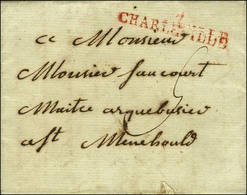 7
CHARLEVILLE
ce Monsieur
Monsieur faucourt
Maitre arquebusier
a St Menehould